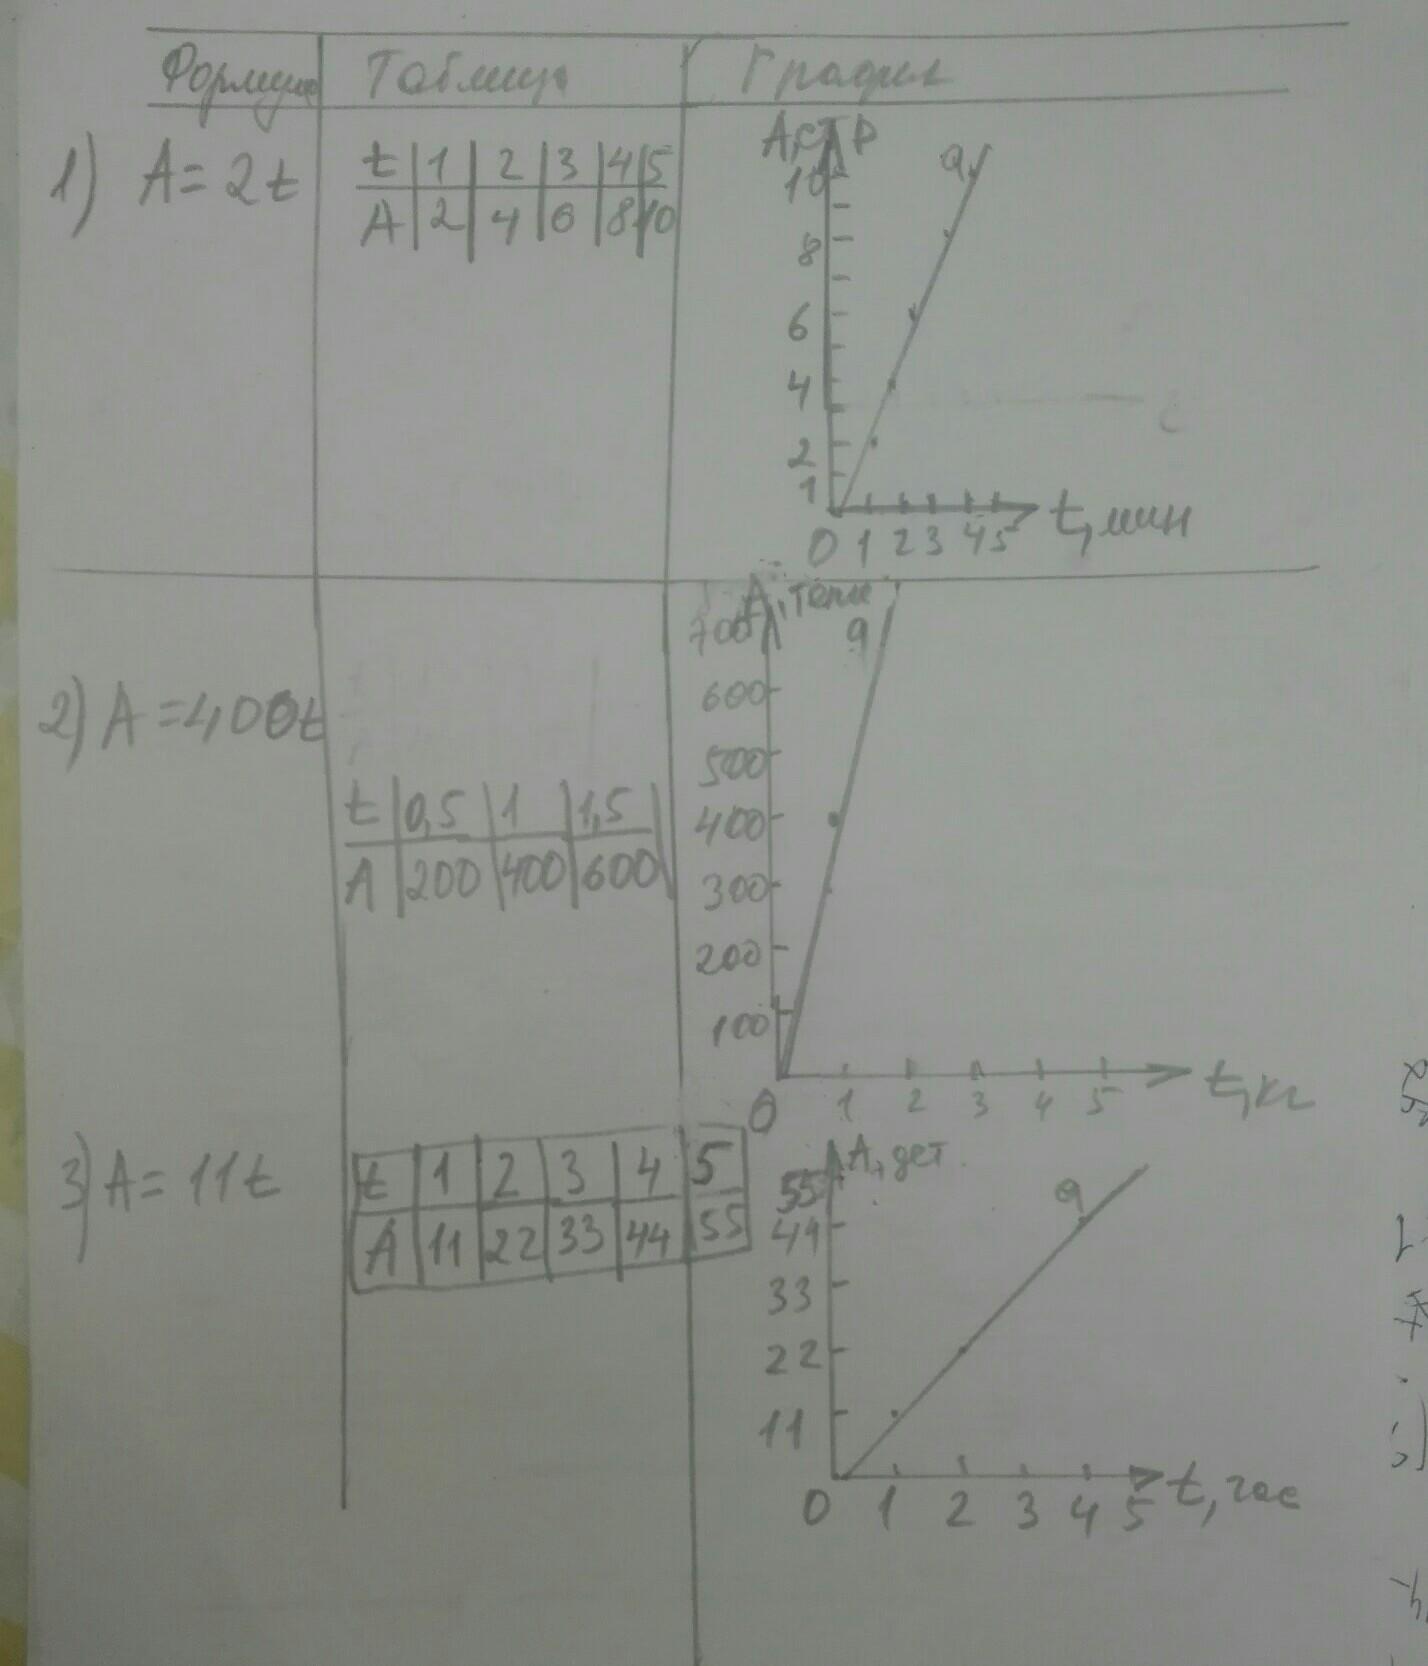 Формула Таблица График
1) A = 2t
t 1 2 3 4 5
A 2 4 6 8 10
A, стр
a
10
8
6
4
2
1
0 1 2 3 4 5 t, мин
2) A = 400t
t 0,5 1 1,5
A 200 400 600
A, тенге
a
700
600
500
400
300
200
100
0 1 2 3 4 5 t, кг
3) A = 11t
t 1 2 3 4 5
A 11 22 33 44 55
A, дет.
a
55
44
33
22
11
0 1 2 3 4 5 t, час